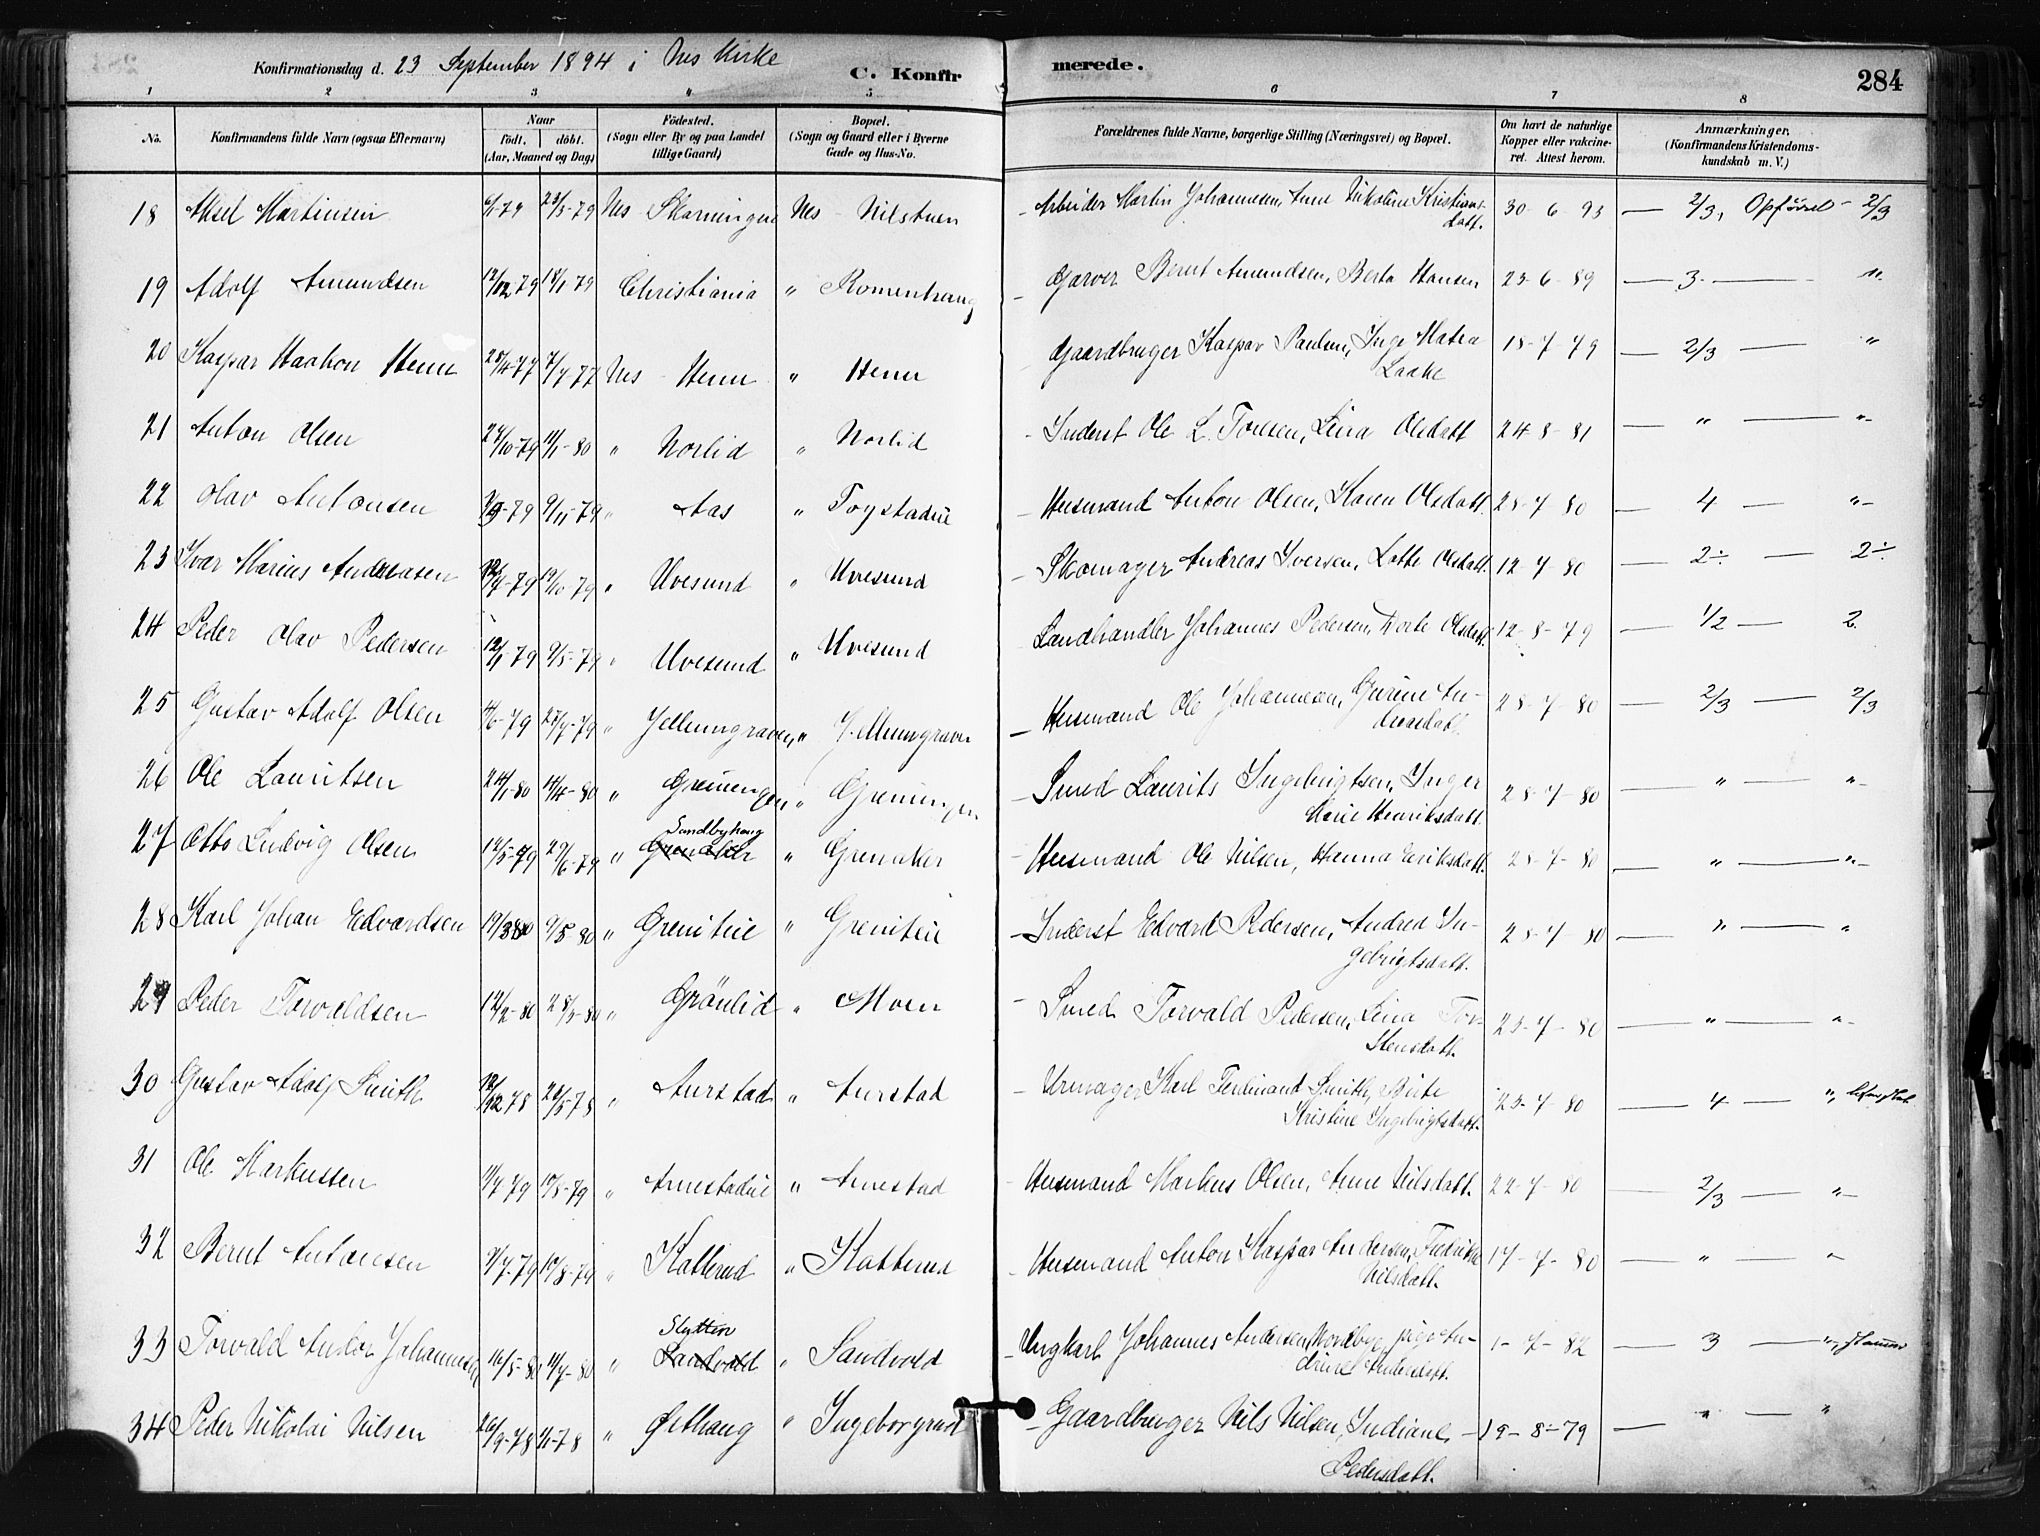 Konfirmationsdag d. 23 September 1894 i Nes Kirke
C. Konfirmerede.
284
1 2 3 4 5 6 7 8
No. Konfirmandens fulde Navn (ogsaa Efternavn) Naar født. døbt. (Aar, Maaned og Dag) Fødested. (Sogn eller By og paa Landet tillige Gaard) Bopæl. (Sogn og Gaard eller i Byerne Gade og Hus-No. Forældrenes fulde Navne, borgerlige Stilling (Næringsvei) og Bopæl. Om havt de naturlige Kopper eller vakcineret. Attest herom. Anmærkninger. (Konfirmandens Kristendomskundskab m. V.)
18 Aksel Martinsen 6/1-79 23/3-79 Nes Nes - Nilstuen - Arbeider Martin Johannesen, Anne Nikoline Kristiansdatt. 30-6-93 — 2/3, Opførsel - 2/3
19 Adolf Amundsen 12/12 79 18/1-79 Christiania " Romenhaug - Garver Bernt Amundsen, Berta Hansen 23-6-89 — 3 — "
20 Kaspar Haakon Henu 28/4-77 7/7-77 Nes - Henu " Henu Gaardbruger Kaspar Paulsen, Inge Laake 18-7-79 — 2/3 — "
21 Anton Olsen 24/10-79 11/1-80 " Norlid " Norlid - Inderst Ole L. Toresen, Lina Olsdatt 24-8-81 — " — "
22 Olav Antonsen 9/11-79 " Aas " Fogstadeie - Husmand Anton Olsen, Karen Olsdatt. 28-7-80 — 4 — "
23 Ivar Marius Andreasen 19/10-79 " Uvesund " Uvesund - Skomager Andreas Iversen, Lotte Olsdatt. 12-7-80 — 2÷ — 2÷
24 Peder Olav Pedersen 12/1-79 9/5-79 " Uvesund " Uvesund Landhandler Johannes Pedersen, Dorte Olsdatt. 12-8-79 — 1/2 — 2.
25 Gustav Adolf Olsen 4/6-79 27/7-79 " Jellumgraven, " Jellumgraven - Husmand Ole Johannesen, Gurine Andreasdatt. 28-7-80 — 2/3 — 2/3
26 Ole Lauritsen 24/1-80 14/4-80 " Greningen " Greningen - Smed Laurits Ingebrigtsen, Inger Marie Henriksdatt. 28-7-80 — " — "
27 Otto Ludvig Olsen 12/5-79 29/6-79 " Sandbyhaug Grenaker " Grenaker - Husmand Ole Nilsen, Hanna Eriksdatt. 28-7-80 — " — "
28 Karl Johan Edvardsen 19/3 80 9/5 80 " Grenieie " Grenieie - Inderst Edvard Pedersen, Andrea Ingebrigtsdatt. 28-7-80 — " — "
29 Peder Torvaldsen 12/2-80 28/3-80 " Grönlid " Moen - Smed Torvald Pedersen, Lina Torstensdatt. 23-7-80 — " — "
30 Gustav Adolf Smith " Aurstad " Aurstad - Urmager Karl Ferdinand Smith, Kristine Ingebrigtsdatt. 23-7-80 — 4 — ",
31 Ole Markussen 11/7 79 17/8-79 " Arnestadeie " Arnestad - Husmand Markus Olsen, Anne Nilsdatt. 22-7-80 — 2/3 — "
32 Bernt Antonsen 9/7-79 17/8-79 " Katterud " Katterud - Husmand Anton Kaspar Andersen, Fredrikke Nilsdatt. 17-7-80 — " — "
33 Torvald Anton Johannesen, 16/5-80 11/7-80 " Slytten Sandvold " Sandvold - Ungkarl Johannes Andersen, Nordbye, pige Andrine Andersdatt. 1-7-82 — 3 — ",
34 Peder Nikolai Nilsen 26/9-78 " Østhaug " Ingeborgrud - Gaardbruger Nils Nilsen, Indiane Pedersdatt. 19-8-79 — " "